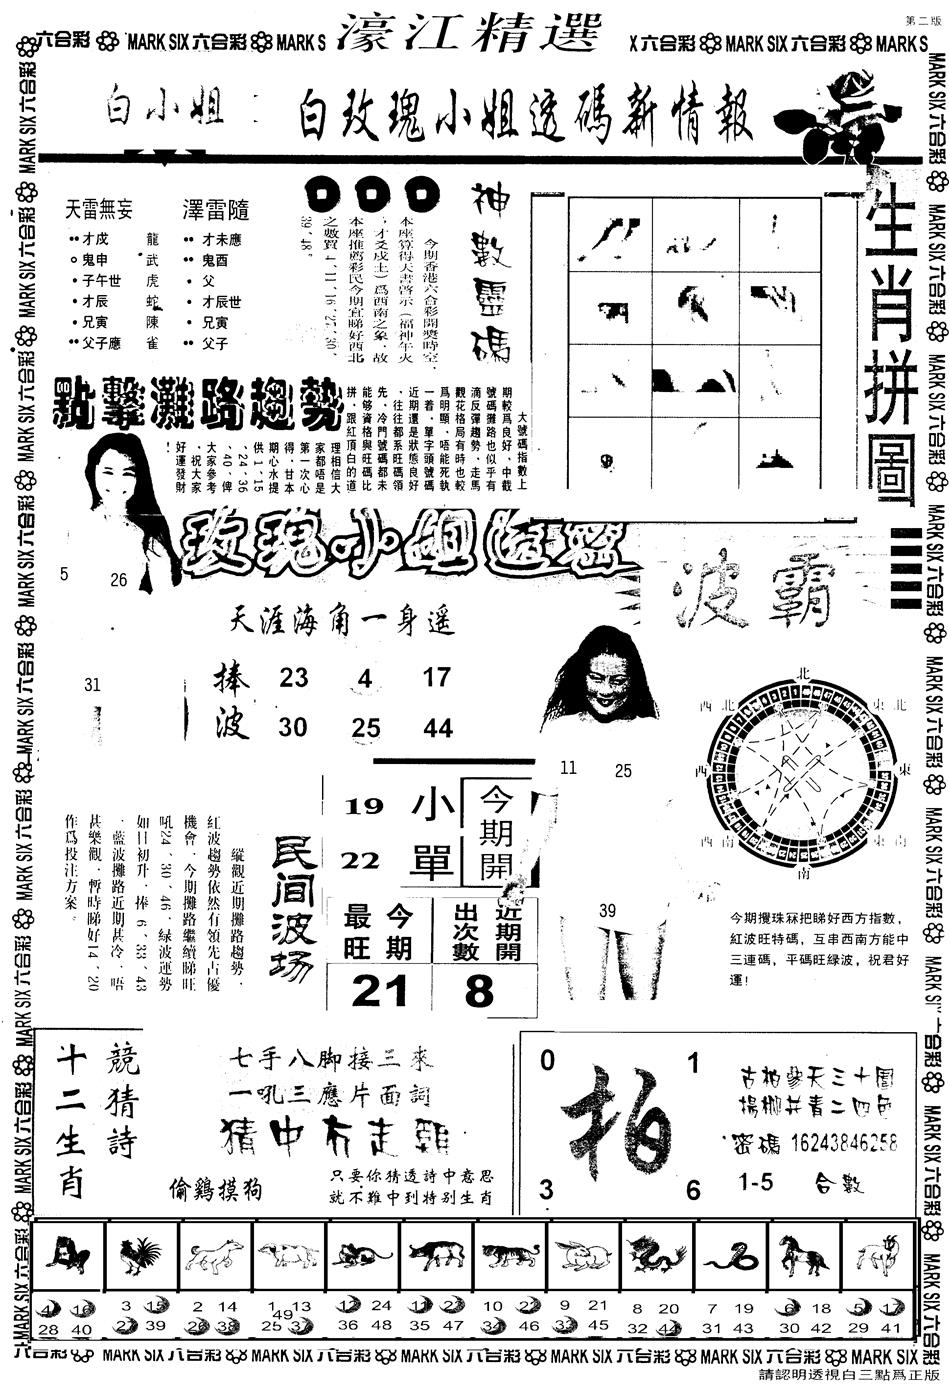 第二版
濠江精選
六合彩 MARK SIX 六合彩 MARK S
X 六合彩 MARK SIX 六合彩 MARK S
白小姐
白玫瑰小姐透碼新情報
天雷無妄
澤雷隨
才戌 龍
鬼申 武
子午世 虎
才辰 蛇
兄寅 陳
父子應 雀
才未應
鬼酉
父
才辰世
兄寅
父子
神數靈碼
今期香港六合彩開獎時空，
本座算得天書啓示（福神午火
，才爻戌土）爲西南之象，故
本座推薦彩民今期宜睇好西北
生肖拼圖
點擊灘路趨勢
大號碼指數上
期較爲良好，中截
號碼攤路也似乎有
滴反彈趨勢，走馬
觀花格局有時也較
爲明顯，唔能死執
一着，單字頭號碼
近期還是狀態良好
，往往都系旺碼領
先，冷門號碼都未
能够資格與旺碼比
拼，跟紅頂白的道
理相信大
家都唔是
第一次心
得，甘本
期心水提
供1、15
、24、36
、40，俾
大家參考
，祝大家
好運發財
！
玫瑰小姐透密
5 26
31
天涯海角一身遥
捧波
23 4 17
30 25 44
波霸
11 25
39
北
東北
東
東南
南
西南
西
西北
今期攪珠冧把睇好西方指數，
紅波旺特碼，互串西南方能中
三連碼，平碼旺緑波，祝君好
運！
民间波场
縱觀近期攤路趨勢，
紅波趨勢依然有領先占優
機會，今期攤路繼續睇旺
吼24、30、46，緑波運勢
如日初升，捧6、33、43
，藍波攤路近期甚冷，唔
甚樂觀，暫時睇好14、20
作爲投注方案。
19 小
22 單
今期開
今期最旺
21
近期開出次數
8
競猜詩
十二生肖
七手八脚接三來
一吼三應片面詞
偷鷄摸狗
只要你猜透詩中意思
就不難中到特别生肖
0 1
柏
3 6
古柏參天三十圍
楊柳共青二四色
密碼 16243846258
1-5 合數
4 16 28 40
3 15 27 39
2 14 26 38
1 13 49 25 37
12 24 36 48
11 23 35 47
10 22 34 46
9 21 33 45
8 20 32 44
7 19 31 43
6 18 30 42
5 17 29 41
六合彩 MARK SIX 六合彩 MARK SIX 六合彩 MARK SIX 六合彩 MARK SIX 六合彩 MARK SIX 六合彩
請認明透視白三點爲正版